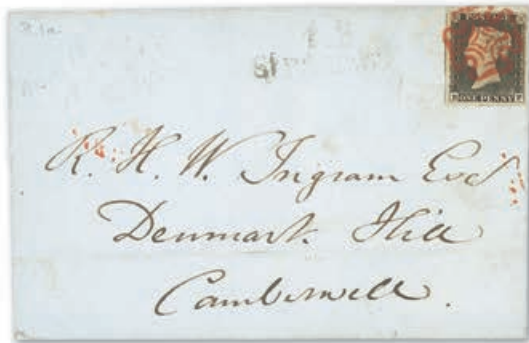 ONE PENNY
R. H. W. Ingram Esq
Denmark Hill
Camberwell.